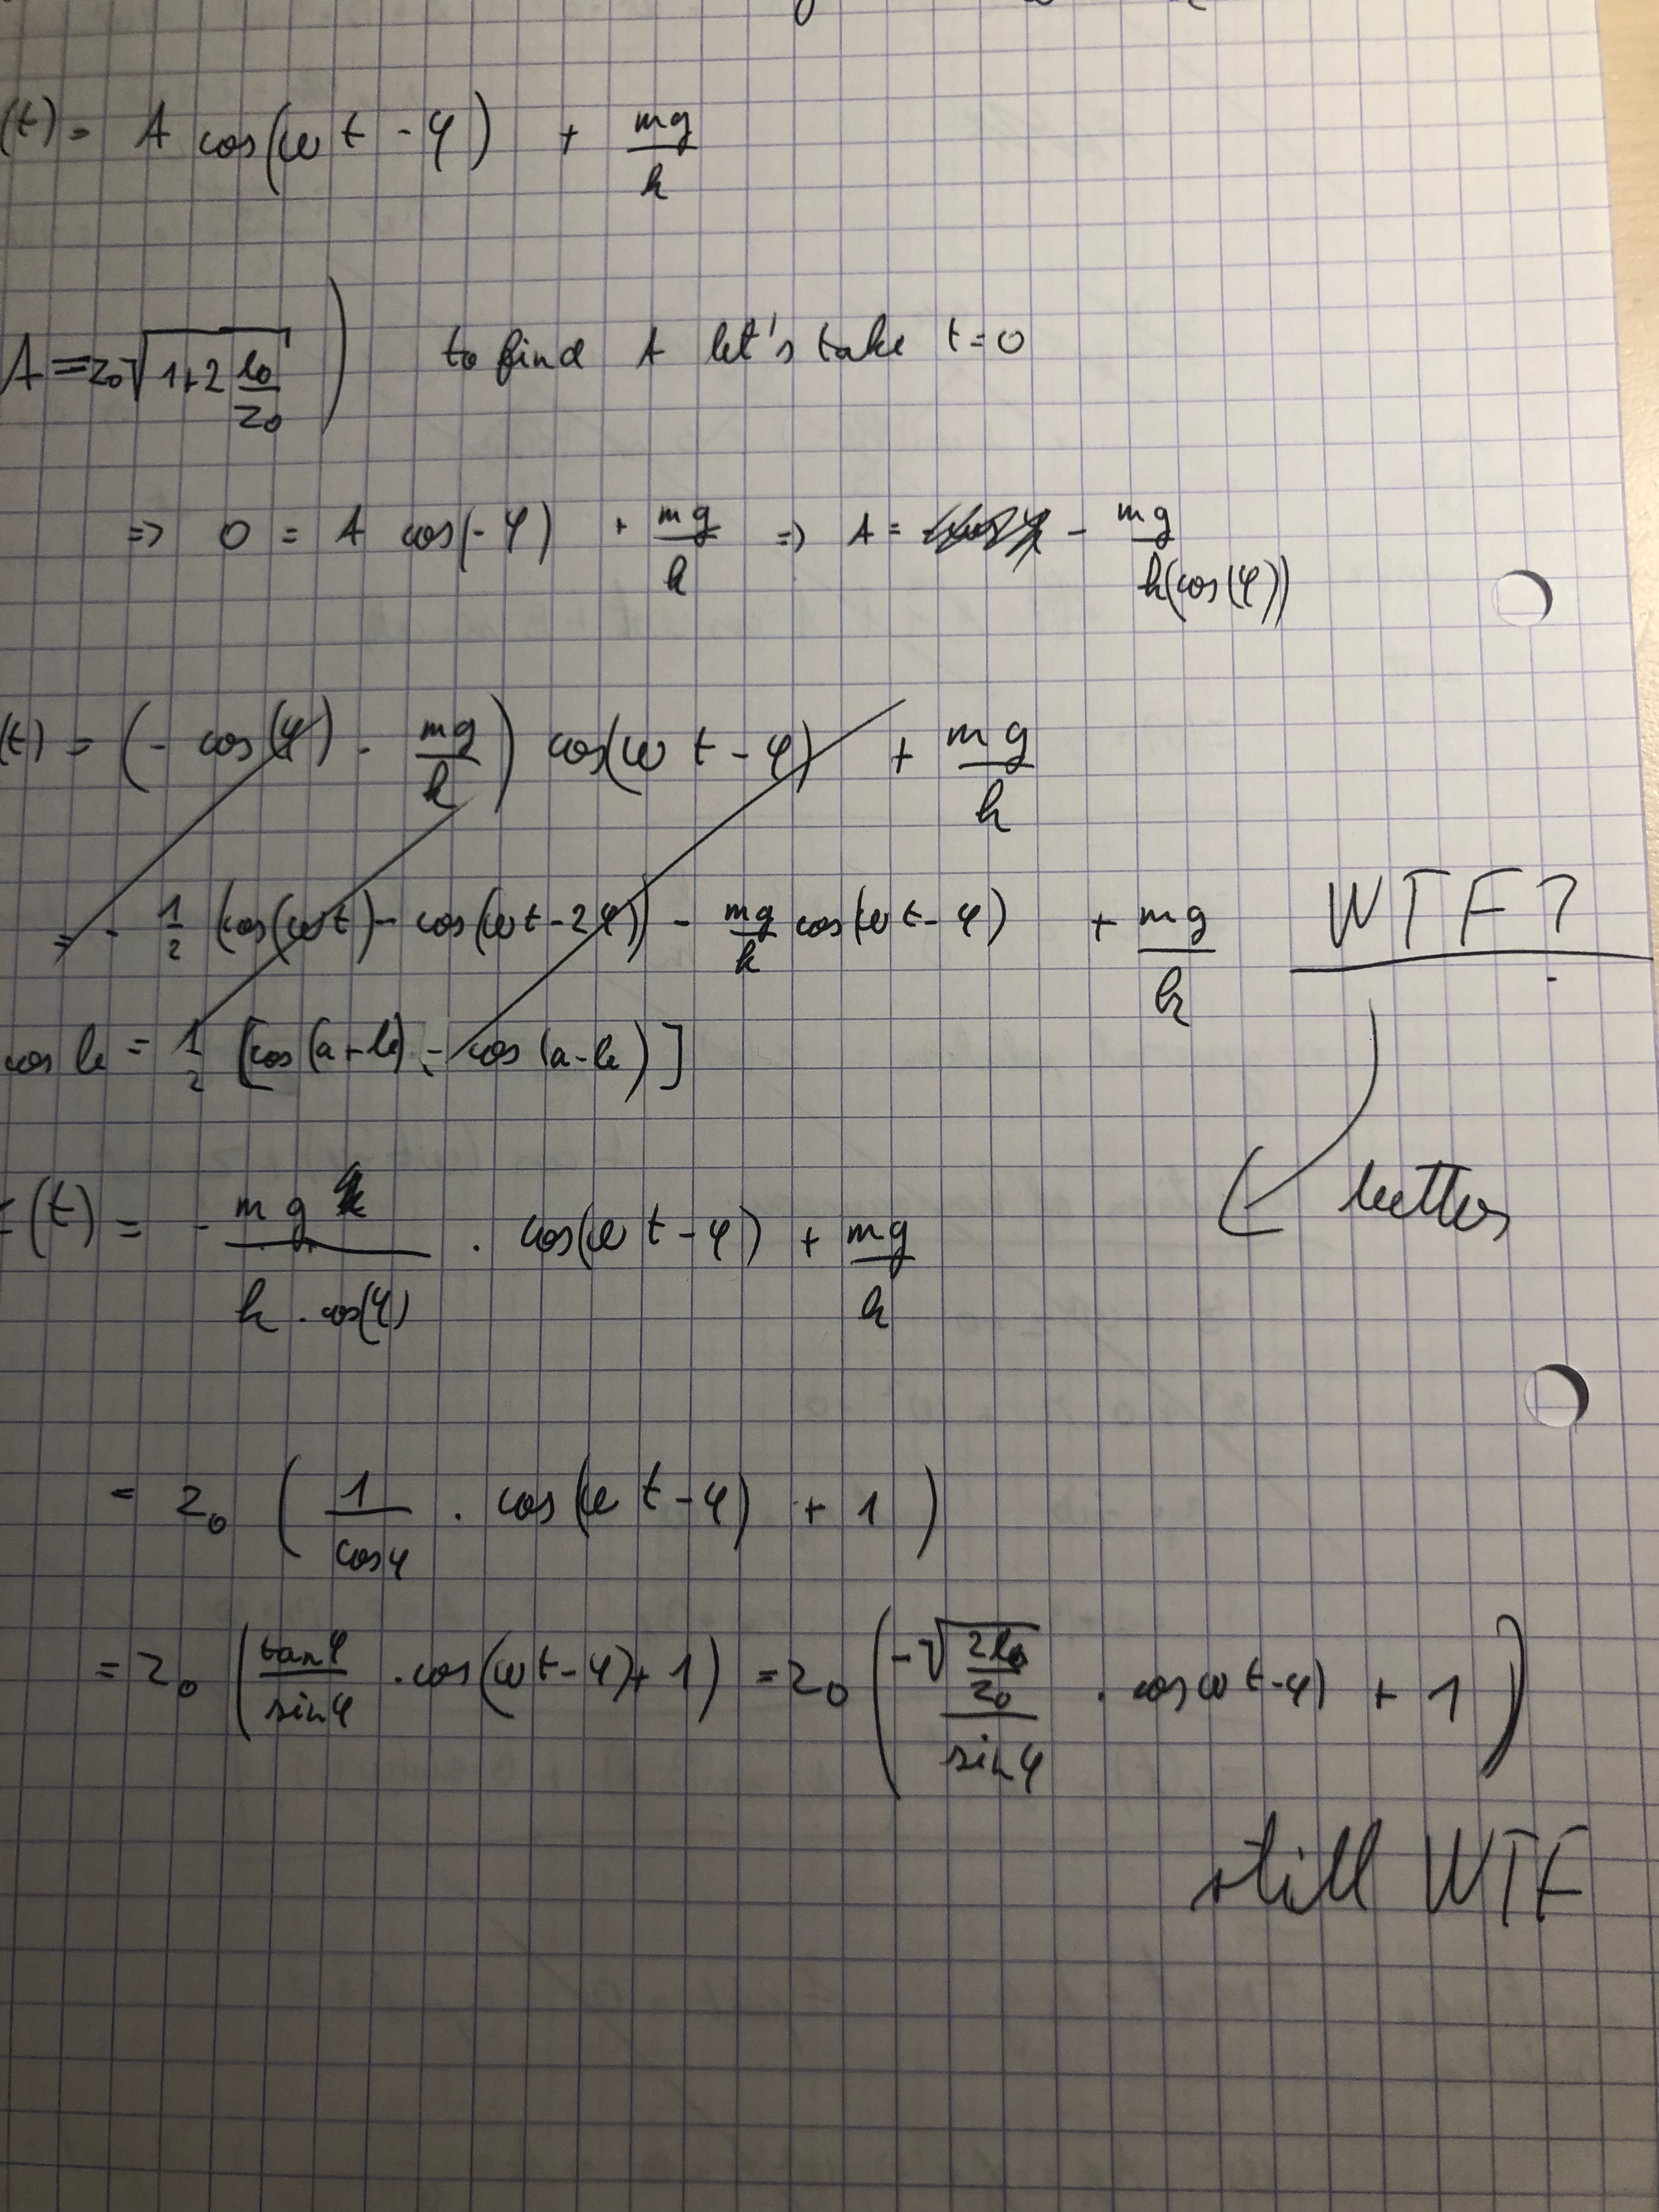 (t) = A cos(ωt - φ) + mg/k
A = z₀√(1+2 l₀/z₀) ) to find A let's take t=0
=> 0 = A cos(-φ) + mg/k => A = - mg/k(cos(φ))
(t) = (- cos(φ) - mg/k) cos(ωt - φ) + mg/k
= - 1/2 (cos(ωt) - cos(ωt-2φ)) - mg/k cos(ωt-φ) + mg/k WTF?
cos b = 1/2 [cos(a+b) - cos(a-b)]
better
(t) = - mg/k . cos(φ) . cos(ωt-φ) + mg/k
= z₀ ( 1/cosφ . cos(ωt-φ) + 1 )
= z₀ ( tanφ/sinφ . cos(ωt-φ) + 1 ) = z₀ ( -√(2l₀/z₀)/sinφ . cos ωt-φ) + 1 )
still WTF